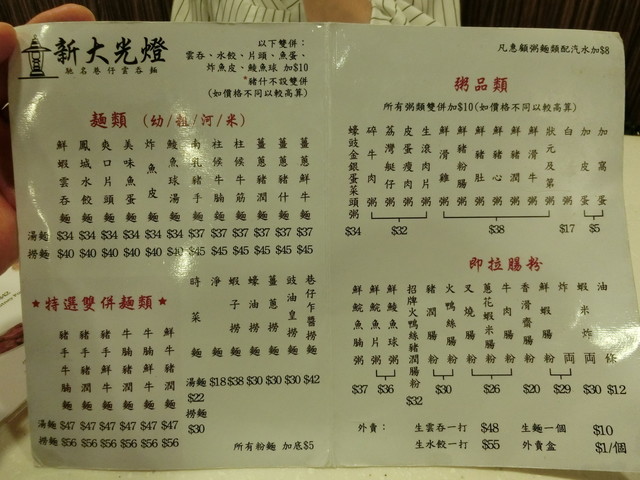 新大光燈
馳名巷仔雲吞麵
以下雙併：
雲吞、水餃、片頭、魚蛋、
炸魚皮、鯪魚球 加$10
*豬什不設雙併
(如價格不同以較高算)
麵類 (幼/粗/河/米)
鮮蝦雲吞麵
鳳城水餃麵
爽口片頭麵
美味魚蛋麵
炸魚皮麵
鯪魚球湯麵
南乳豬手麵
柱候牛腩麵
柱候牛筋麵
薑蔥豬潤麵
薑蔥豬什麵
薑蔥牛肉麵
湯麵 $34 $34 $34 $34 $34 $34 $37 $37 $37 $37 $37 $37
撈麵 $40 $40 $40 $40 $40 $40 $45 $45 $45 $45 $45 $45
★特選雙併麵類★
豬手牛腩麵
豬手豬潤麵
豬手鮮牛麵
牛腩鮮牛麵
牛腩豬潤麵
鮮牛豬潤麵
湯麵 $47 $47 $47 $47 $47 $47
撈麵 $56 $56 $56 $56 $56 $56
時菜
淨麵
蝦子撈麵
蠔油撈麵
薑蔥撈麵
豉油皇撈麵
巷仔乍醬撈麵
湯麵 $22
撈麵 $30
$18 $38 $30 $30 $30 $42
所有粉麵 加底$5
凡惠顧粥麵類配汽水加$8
粥品類
所有粥類雙併加$10(如價格不同以較高算)
蠔豉金銀菜頭粥
碎牛肉粥
荔灣艇仔粥
皮蛋瘦肉粥
生滾肉片粥
鮮滑雞粥
鮮豬粉腸粥
鮮豬肚粥
鮮豬心粥
鮮豬潤粥
鮮滑牛粥
狀元及第粥
白粥
加皮蛋
加窩蛋
$34 $32 $38 $17 $5
即拉腸粉
鮮鯇魚腩粥
鮮鯇魚片粥
鮮鯪魚球粥
招牌火鴨絲豬潤腸粉
豬潤腸粉
火鴨絲腸粉
叉燒腸粉
蔥花蝦米腸粉
牛肉腸粉
香滑齋腸粉
鮮蝦腸粉
炸両
蝦米炸両
油條
$37 $36 $32 $30 $26 $20 $29 $30 $12
外賣： 生雲吞一打 $48 生麵一個 $10
生水餃一打 $55 外賣盒 $1/個